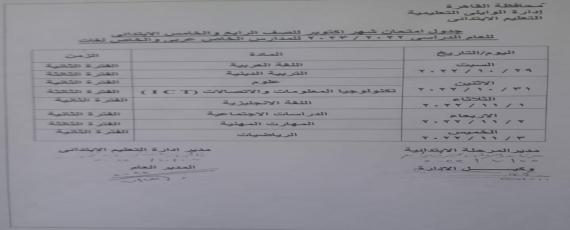 محافظة القاهرة
إدارة الوايلى التعليمية
التعليم الابتدائى
جدول امتحان شهر اكتوبر للصف الرابع والخامس الابتدائى
للعام الدراسى ٢٠٢٢ / ٢٠٢٣ للمدارس الخاص عربى والخاص لغات
اليوم/التاريخ المادة الزمن
السبت اللغة العربية الفترة الثانية
٢٠٢٢/١٠/٢٩ التربية الدينية الفترة الثالثة
الاثنين علوم الفترة الثانية
٢٠٢٢/١٠/٣١ تكنولوجيا المعلومات والاتصالات (ICT) الفترة الثالثة
الثلاثاء اللغة الانجليزية الفترة الثانية
٢٠٢٢/١١/١
الاربعاء الدراسات الاجتماعية الفترة الثانية
٢٠٢٢/١١/٢ المهارت المهنية الفترة الثالثة
الخميس الرياضيات الفترة الثانية
٢٠٢٢/١١/٣
مدير المرحلة الابتدائية مدير إدارة التعليم الابتدائى
وكيل الادارة المدير العام